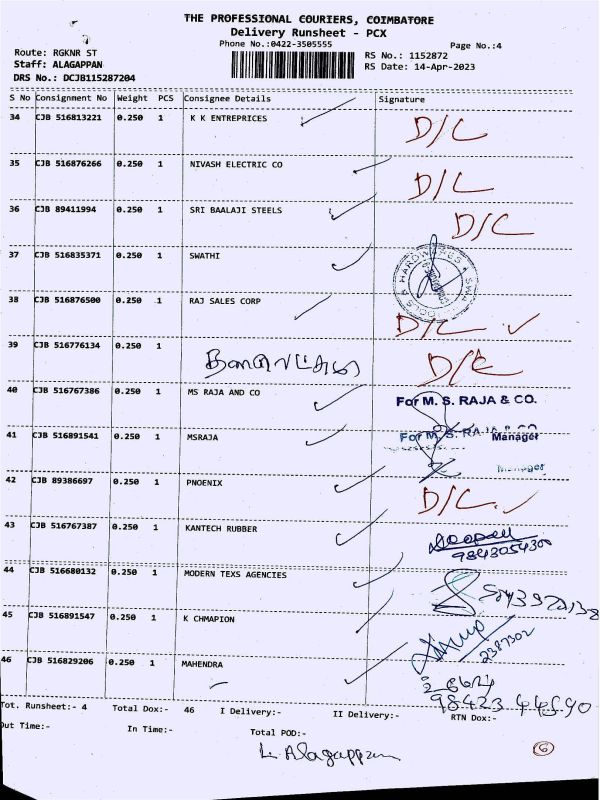 THE PROFESSIONAL COURIERS, COIMBATORE
Delivery Runsheet - PCX
Phone No.:0422-3505555
Page No.:4
Route: RGKNR ST
RS No.: 1152872
Staff: ALAGAPPAN
RS Date: 14-Apr-2023
DRS No.: DCJB115287204
S No Consignment No Weight PCS Consignee Details Signature
34 CJB 516813221 0.250 1 K K ENTREPRICES D/C
35 CJB 516876266 0.250 1 NIVASH ELECTRIC CO D/C
36 CJB 89411994 0.250 1 SRI BAALAJI STEELS D/C
37 CJB 516835371 0.250 1 SWATHI
38 CJB 516876500 0.250 1 RAJ SALES CORP D/C
39 CJB 516776134 0.250 1 D/C
40 CJB 516767386 0.250 1 MS RAJA AND CO For M. S. RAJA & CO.
Manager
41 CJB 516891541 0.250 1 MSRAJA For M. S. RAJA & CO.
Manager
42 CJB 89386697 0.250 1 PNOENIX D/C
43 CJB 516767387 0.250 1 KANTECH RUBBER
9843054300
44 CJB 516680132 0.250 1 MODERN TEXS AGENCIES
45 CJB 516891547 0.250 1 K CHMAPION
2387302
46 CJB 516829206 0.250 1 MAHENDRA
98423 44590
Tot. Runsheet:- 4 Total Dox:- 46 I Delivery:- II Delivery:- RTN Dox:-
Out Time:- In Time:- Total POD:-
L. Alagappan
6